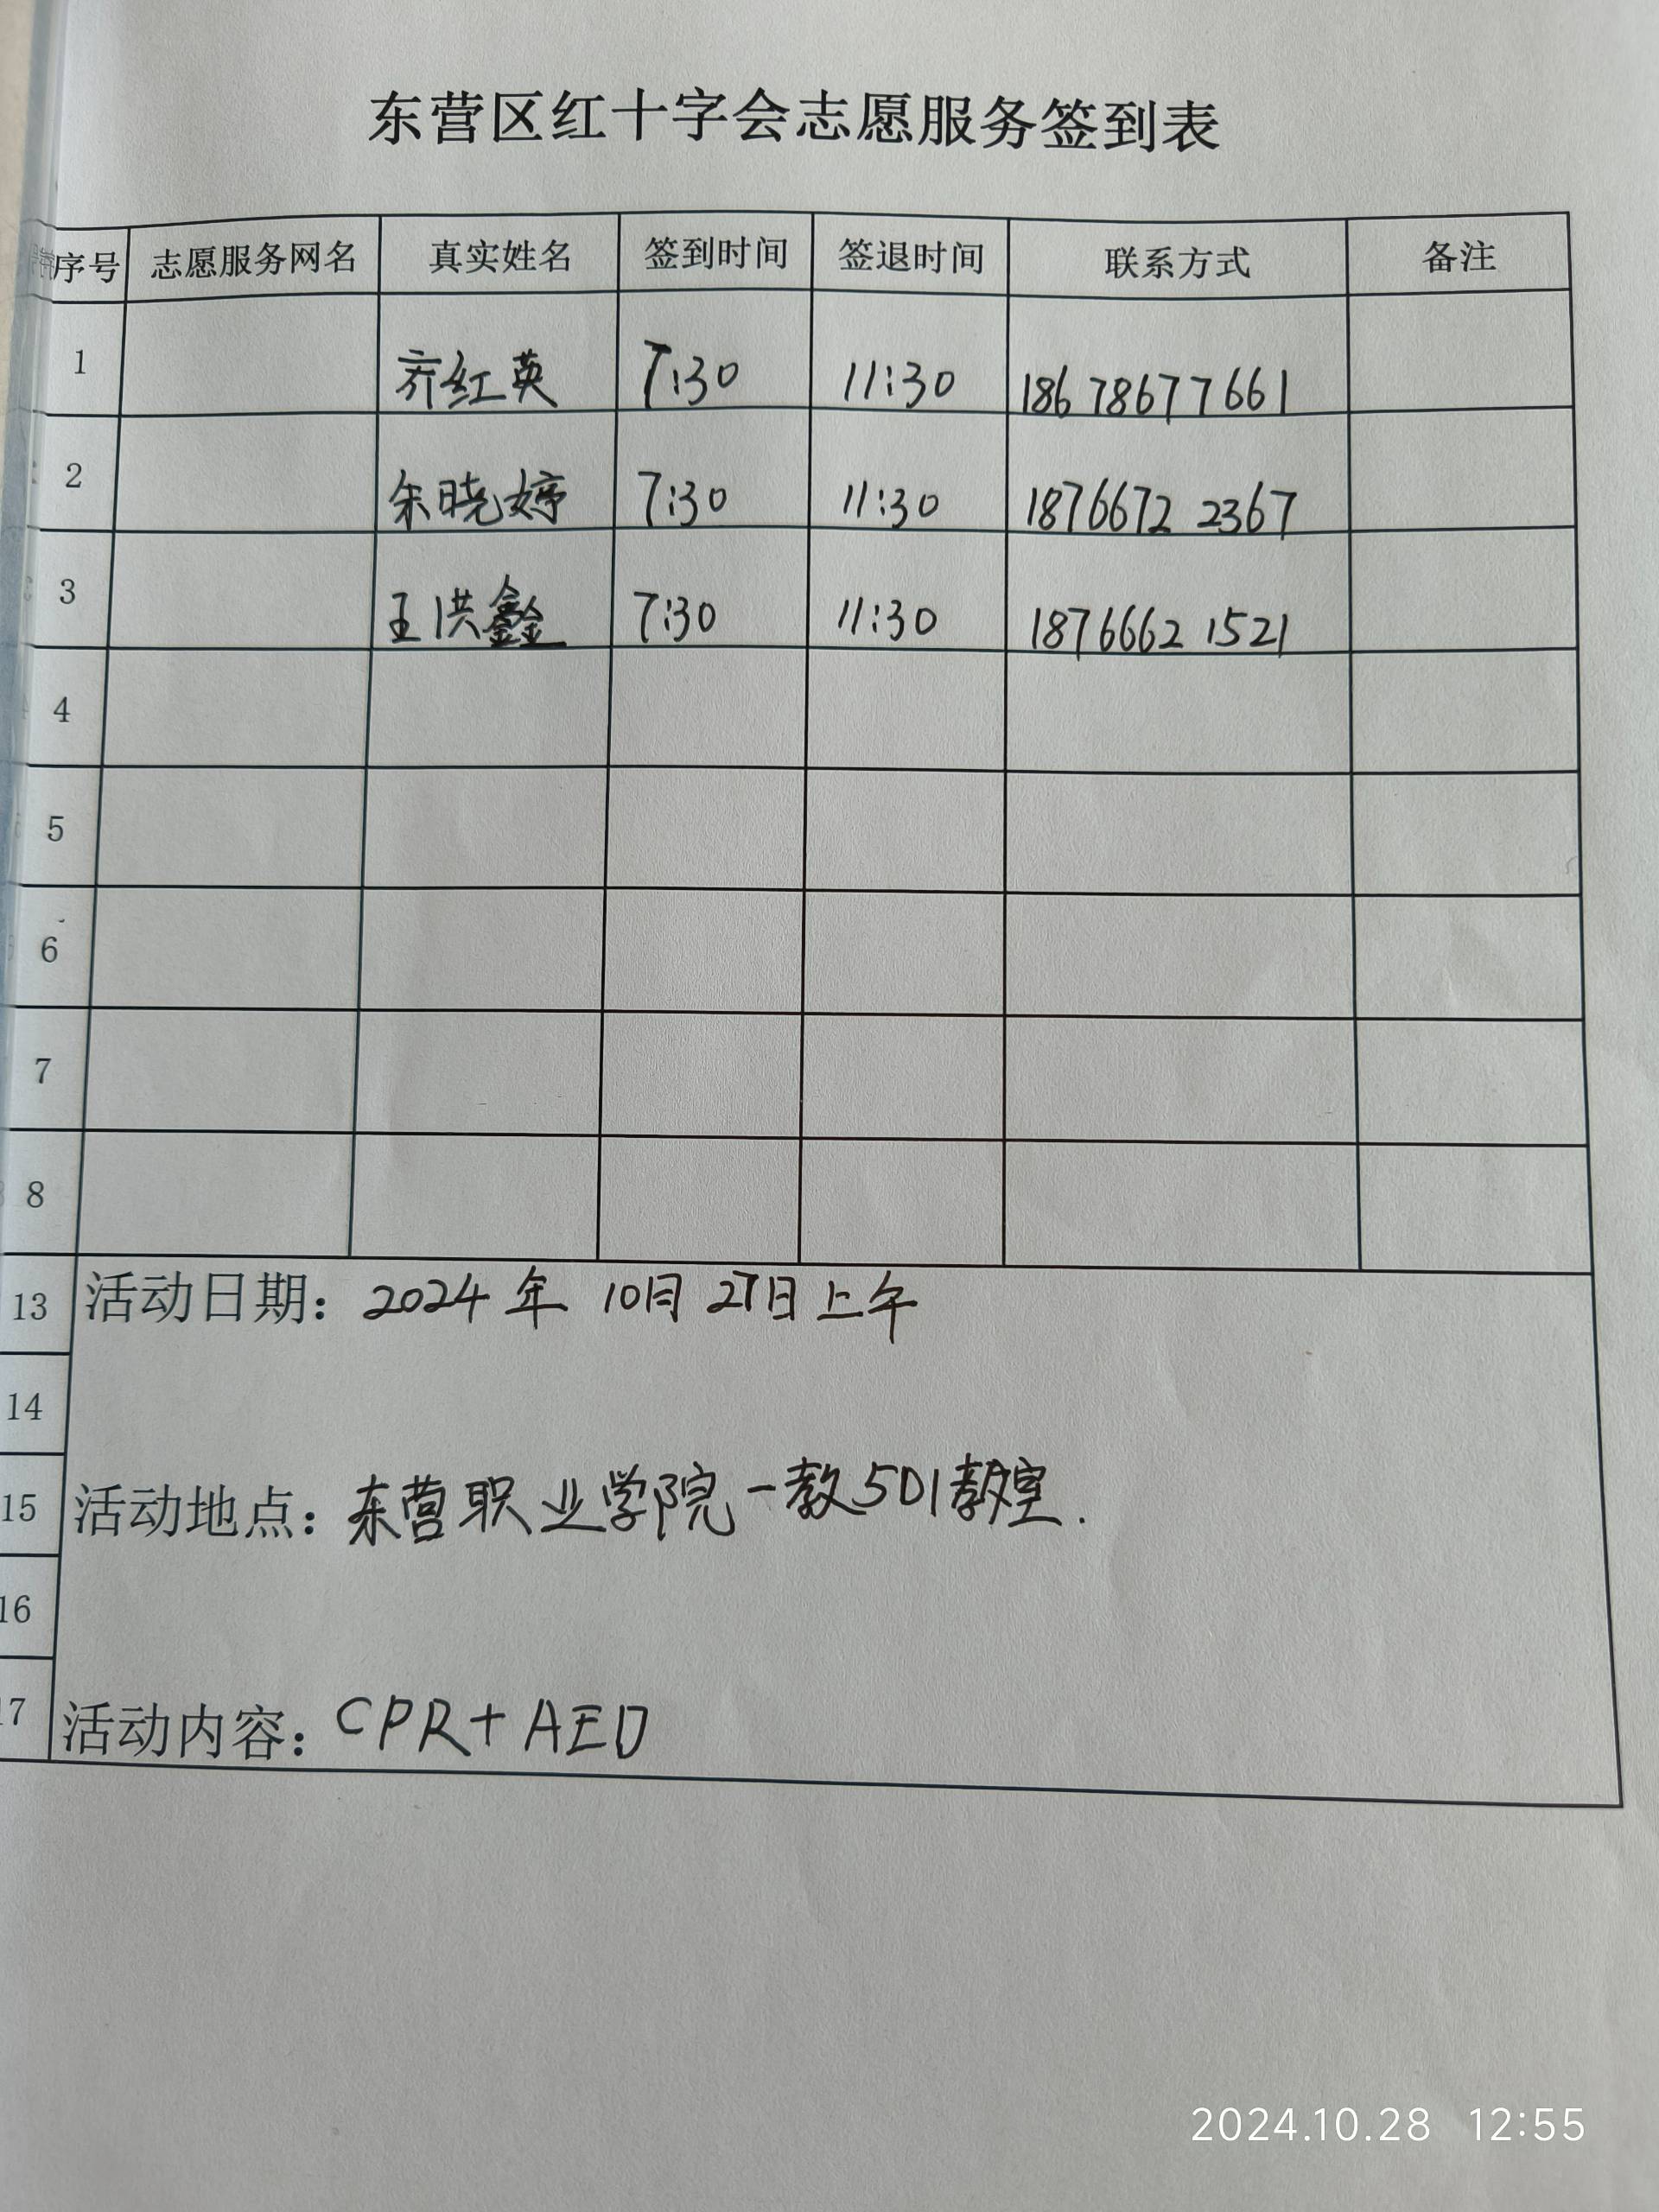 东营区红十字会志愿服务签到表
序号 志愿服务网名 真实姓名 签到时间 签退时间 联系方式 备注
1 齐红英 7:30 11:30 18678677661
2 朱晓婷 7:30 11:30 1876672 2367
3 王洪鑫 7:30 11:30 1876662 1521
4
5
6
7
8
13 活动日期：2024年 10月 27日上午
14
15 活动地点：东营职业学院一教501教室.
16
17 活动内容：CPR+AED
2024.10.28 12:55